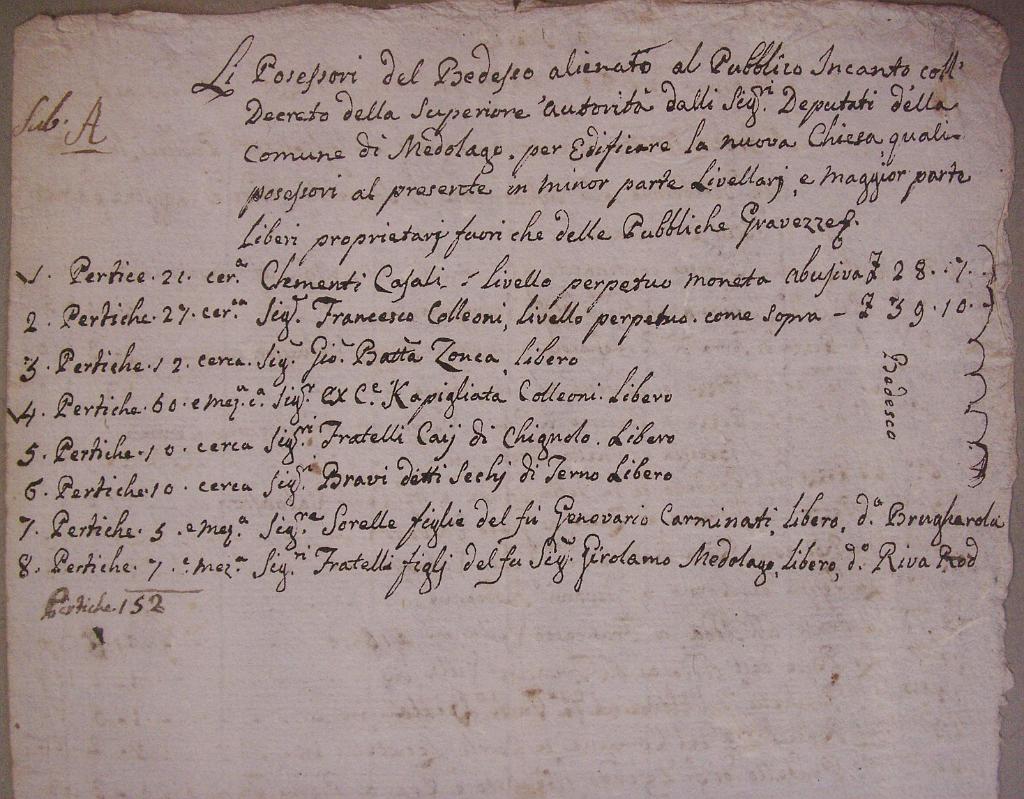 Sub. A
Li Posessori del Bedesco alienato al Pubblico Incanto coll'
Decreto della Superiore autorità dalli Sig.ri Deputati della
Comune di Medolago. per Edificare la nuova Chiesa, quali
posessori al presente in minor parte Livellarj, e maggior parte
Liberi proprietarj fuori che delle Pubbliche Gravezze.
1. Pertice. 21. cer.a Clementi Casali - livello perpetuo moneta abusiva £ 28. 7.
2. Pertiche. 27. cer.a Sig.r Francesco Colleoni, livello perpetuo. come sopra - £ 39. 10.
3. Pertiche. 12. cerca. Sig.r Gio. Batta Zonca, libero
4. Pertiche. 60. e mez.a c.a Sig.r ex C.e Kapigliata Colleoni. Libero
5. Pertiche. 10. cerca Sig.ri Fratelli Caij di Chignolo. Libero
6. Pertiche. 10. cerca Sig.ri Bravi detti Sechj di Terno Libero
7. Pertiche. 5. e mez.a Sig.re Sorelle figlie del fu Genovario Carminati, libero, d.a Brugherola
8. Pertiche. 7. e mez.a Sig.ri Fratelli figlj del fu Sig.r Girolamo Medolago, libero, d.o Riva Rod
Pertiche. 152
Bedesco